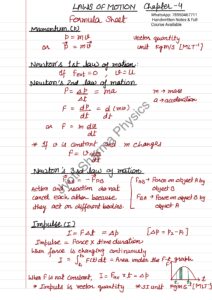 LAWS OF MOTION Chapter-4
Formula Sheet
Whatsapp: 7999461711
Handwritten Notes & Full
Course Available
Momentum (P)
P = mv vector quantity
or P⃗ = mv⃗ unit kgm/s [MLT⁻¹]
Newton's 1st law of motion:
If Fext = 0 ; v = u
Newton's 2nd law of motion
F = ΔP/Δt = ma m → mass
a → acceleration
F = dP/dt = d(mv)/dt
or F = m dv/dt
* If v is constant and m changes
F = v dm/dt
Newton's 3rd law of motion
Action and reaction do not
cancel each other because
they act on different bodies.
FAB = Force on object A by
object B
FBA = Force on object B by
object A
Impulse (I)
I = FΔt = ΔP [ΔP = P₂ - P₁]
Impulse = Force × time duration
When force is changing continuously
I = ∫ F(t) dt = Area under F-t graph
When F is not constant, I = Fav × t = ΔP
* Impulse is vector quantity * SI unit kgms⁻¹ [MLT⁻¹]
Sharma Physics